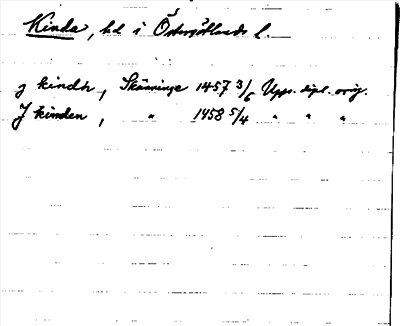 Kinda, hd i Östergötlands l.
J kindh, Skänninge 1457 3/6 Upps. dipl. orig.
J kinden, " 1458 5/4 " " "